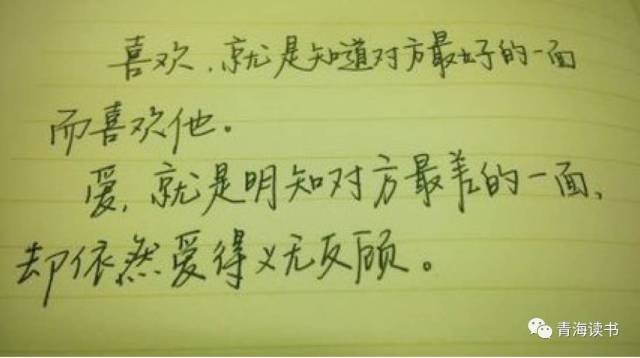 喜欢,就是知道对方最好的一面
而喜欢他。
爱,就是明知对方最差的一面,
却依然爱得义无反顾。
青海读书